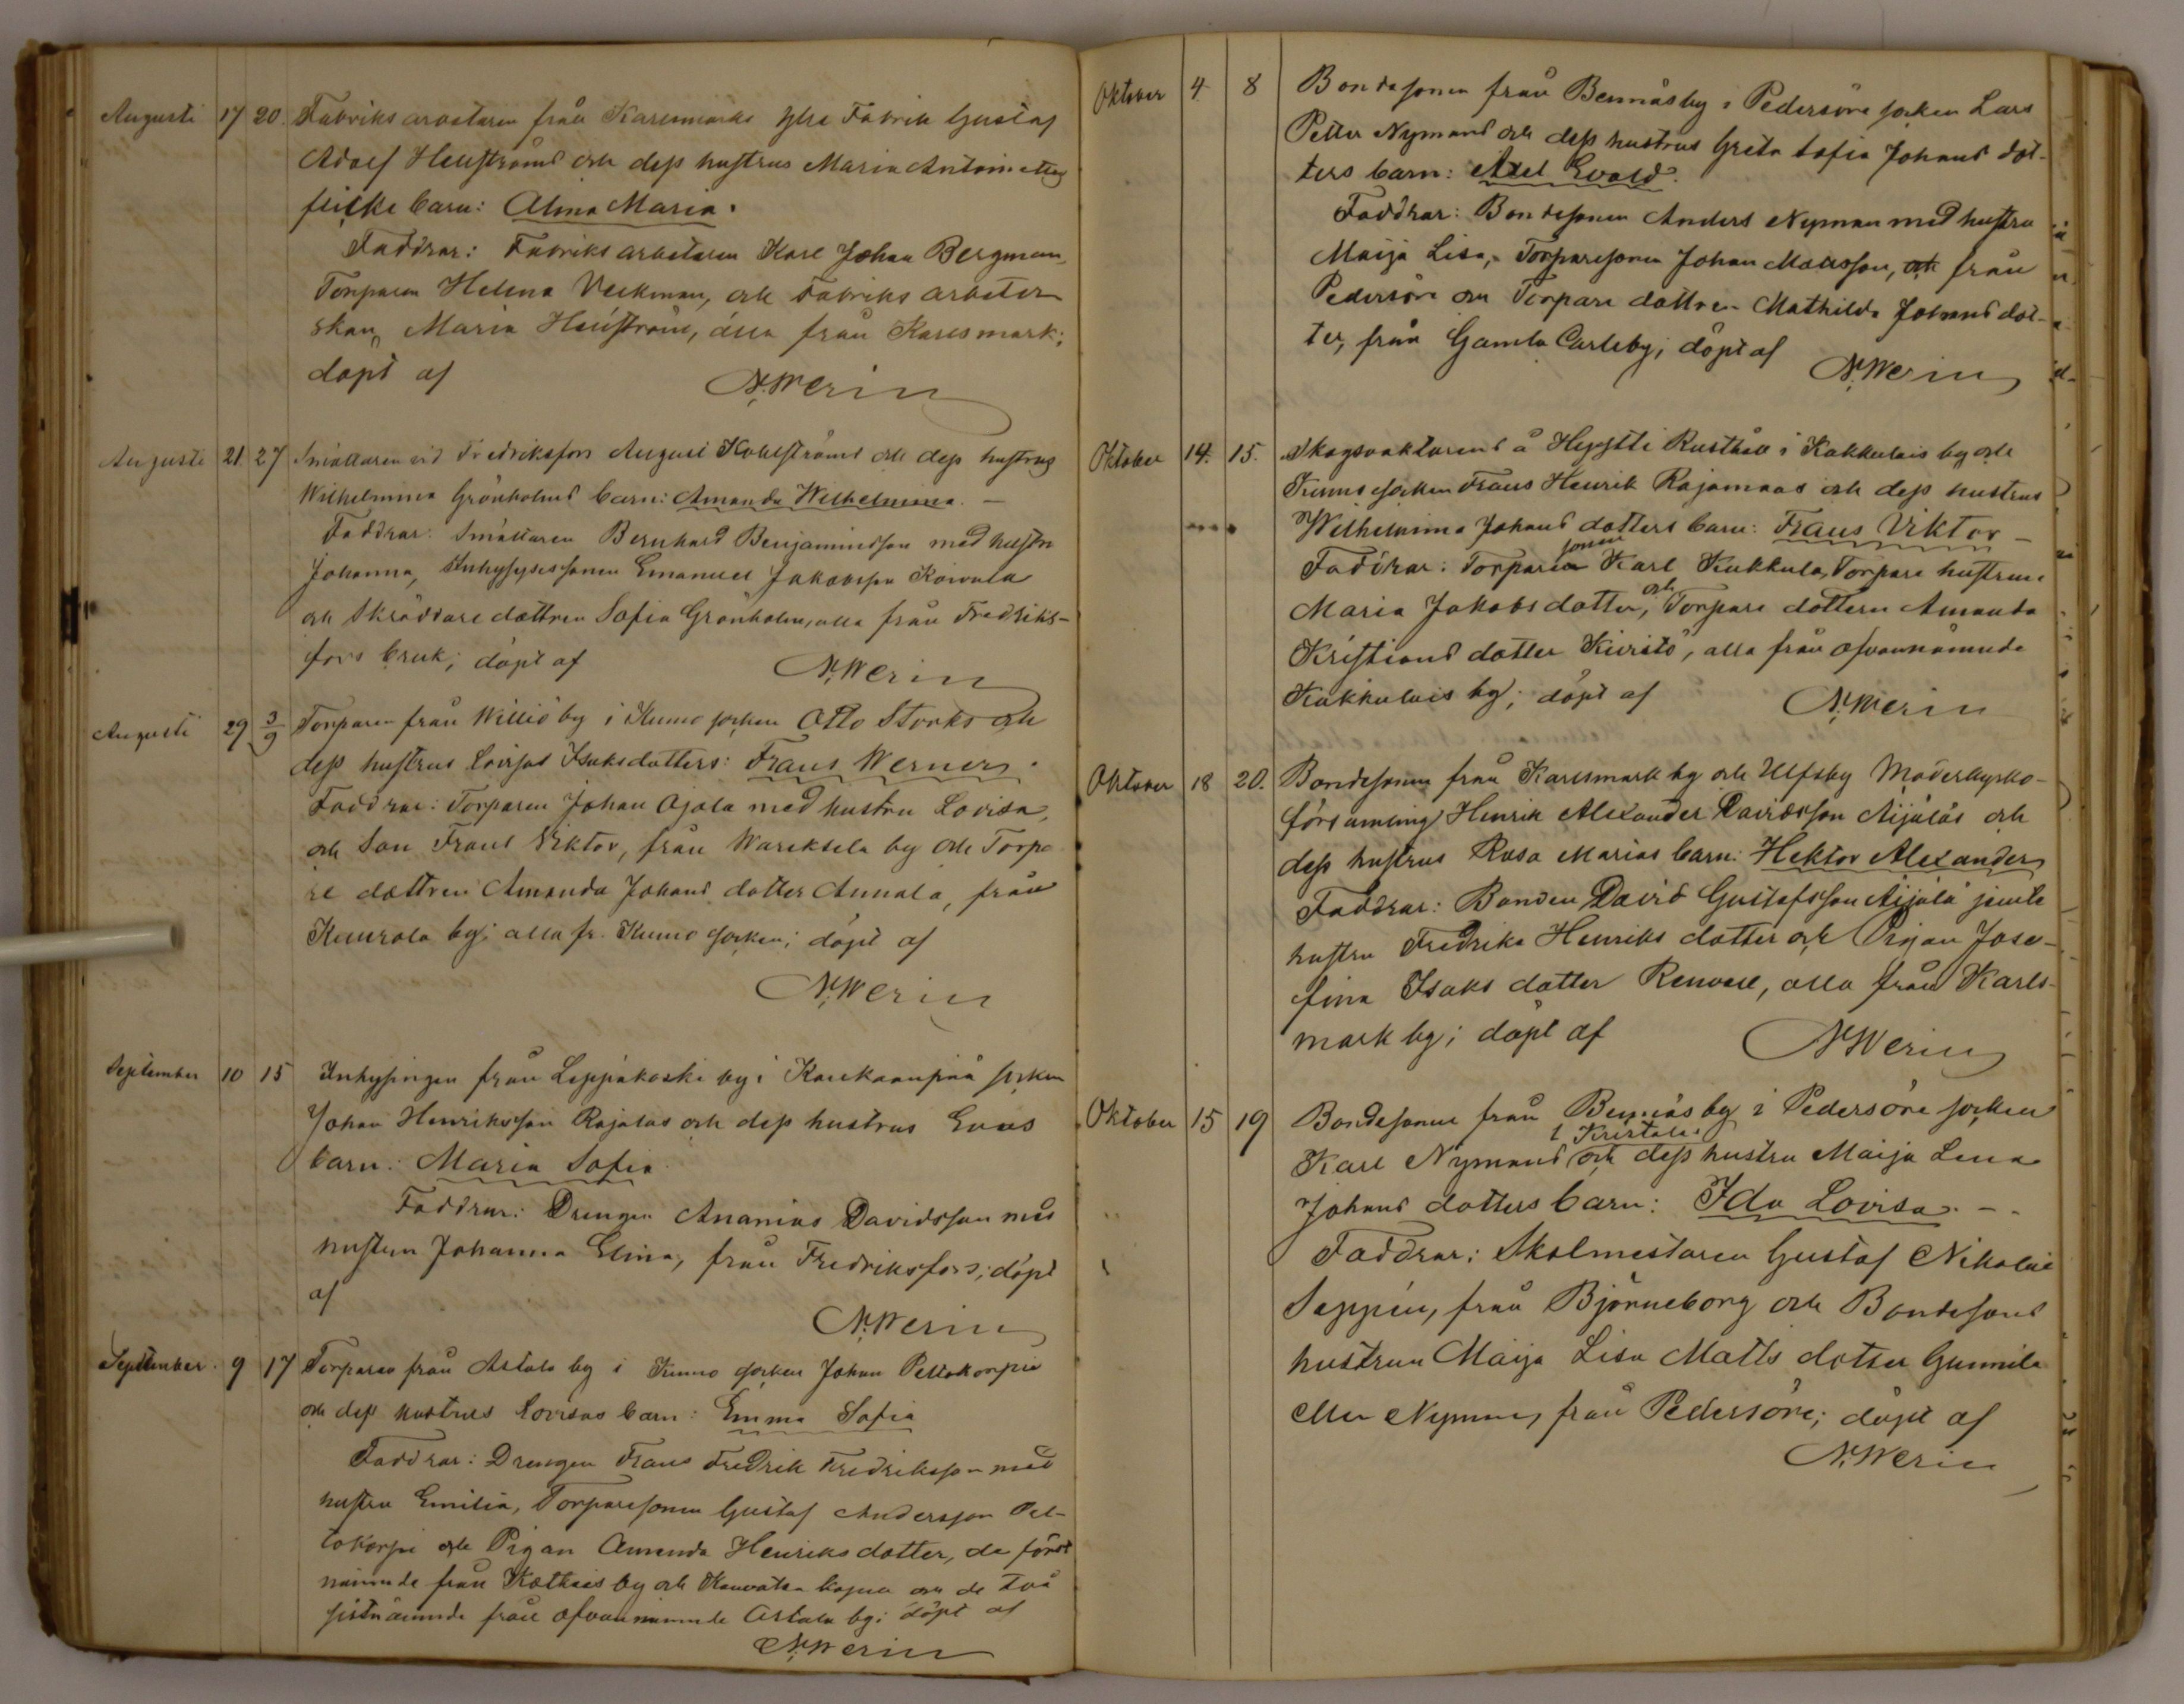 Augusti 17 20. Fabriks arbetaren från Karlsmarks ylle Fabrik Gustaf
Adolf Hellströms och dess hustrus Maria Antoinettas
flicke barn: Alma Maria.
Faddrar: Fabriks arbetaren Karl Johan Bergman,
Torparen Helena Veckman, och Fabriks arbeter-
skan, Maria Hellström, alla från Karlsmark;
döpt af N. Werin
Augusti 21. 27 Smältaren vid Fredriksfors August Kohlströms och dess hustrus
Wilhelmina Grönholms barn: Amanda Wilhelmina. –
Faddrar: Smältaren Bernhard Benjaminsson med hustru
Johanna, Inhysessonen Emanuel Jakobsson Koivula
och Skräddare dottren Sofia Grönholm, alla från Fredriks-
fors bruk; döpt af N. Werin
Augusti 29 3/9 Torparen från Williö by i Kumo socken Otto Storks och
dess hustrus Lovisas Isaksdotters: Frans Werner.
Faddrar: Torparen Johan Ojala med hustru Lovisa,
och Son Frans Viktor, från Wareksela by och Torpa
re dottren Amanda Johans dotter Annala, från
by; alla fr. Kumo socken; döpt af
N. Werin
September 10 15 Inhysingen från Leppäkoski by i Kankaanpää socken
Johan Henriksson Rajalas och dess hustrus Evas
barn: Maria Sofia.
Faddrar: Drengen Ananias Davidsson med
hustrun Johanna Elina, från Fredriksfors; döpt
af
N. Werin
September. 9 17 Torparen från Astala by i Kumo socken Johan Peltokorpis
och dess hustrus Lovisas barn: Emma Sofia
Faddrar: Drengen Frans Fredrik Fredriksson med
hustru Emilia, Torparesonen Gustaf Andersson Pel-
tokorpi och Pigan Amanda Henriks dotter, de först
nämnde från by och Kauvatsa kapell och de två
sistnämnde från ofvannämnde Astala by; döpt af
N. Werin
Oktober 4 8 Bondesonen från Bennäsby i Pedersöre socken Lars
Petter Nymans och dess hustrus Greta Sofia Johans dot-
ters barn: Axel Evald.
Faddrar: Bondesonen Anders Nyman med hustru
Maija Lisa, Torparesonen Johan Matsson, och från
Pedersöre och Torpare dottren Mathilda Johans dot-
ter, från Gamla Carleby; döpt af N. Werin
Oktober 14. 15. Skogsvaktarens å Hyystti Rusthåll i Kukkulais by och
Kumo socken Frans Henrik Rajamaas och dess hustrus
Wilhelmina Johans dotters barn: Frans Viktor –
sonen
Faddrar: Torparen Karl Kukkula, Torpare hustrun
och
Maria Jakobs dotter, Torpare dottern Amanda
Kristians dotter Kivistö, alla från ofvannämnde
Kukkulais by; döpt af N. Werin
Oktober 18 20. Bondesonen från Karlsmark by och Ulfsby Moderkyrko-
församling Henrik Alexander Davidsson Äijäläs och
dess hustrus Rosa Marias barn: Hektor Alexander
Faddrar: Bonden David Gustafsson Äijälä jemte
hustru Fredrika Henriks dotter och Pigan Jose-
fina Isaks dotter Renvall, alla från Karls-
mark by; döpt af N. Werin
Oktober 15 19 Bondesonen från Bennäs by i Pedersöre socken
Karl Nymans och dess hustru Maija Lena
Johans dotters barn: Ida Lovisa. – –
Faddrar: Skolmestaren Gustaf Nikolai
Seppén, från Björneborg och Bondesons
hustrun Maija Lisa Matts dotter Gunnila
eller Nyman, från Pedersöre; döpt af
N. Werin